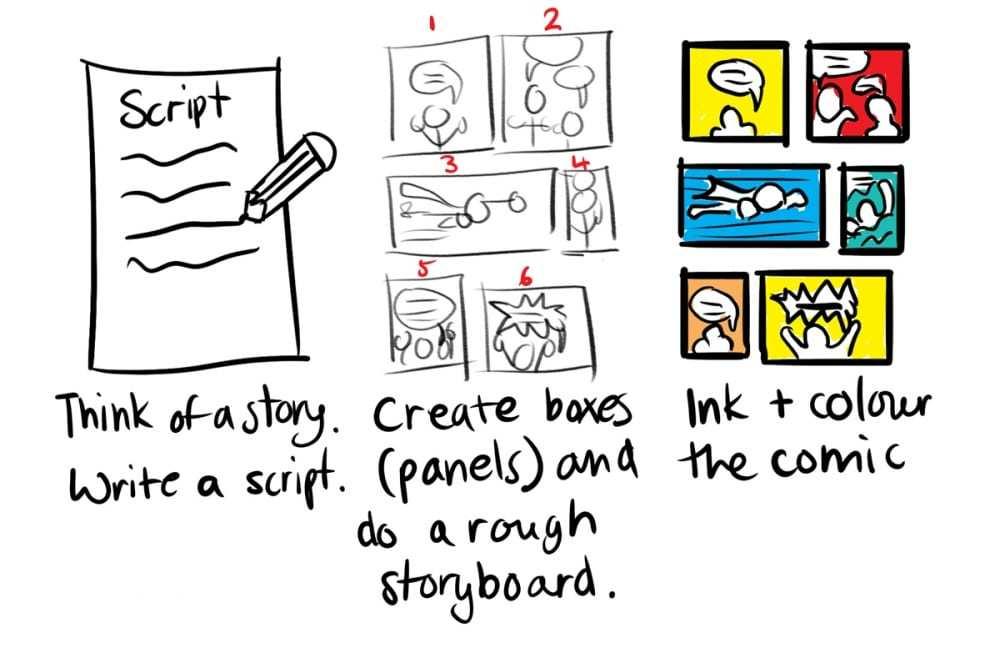 Script
1
2
3
4
5
6
Think of a story.
Write a script.
Create boxes
(panels) and
do a rough
storyboard.
Ink + colour
the comic